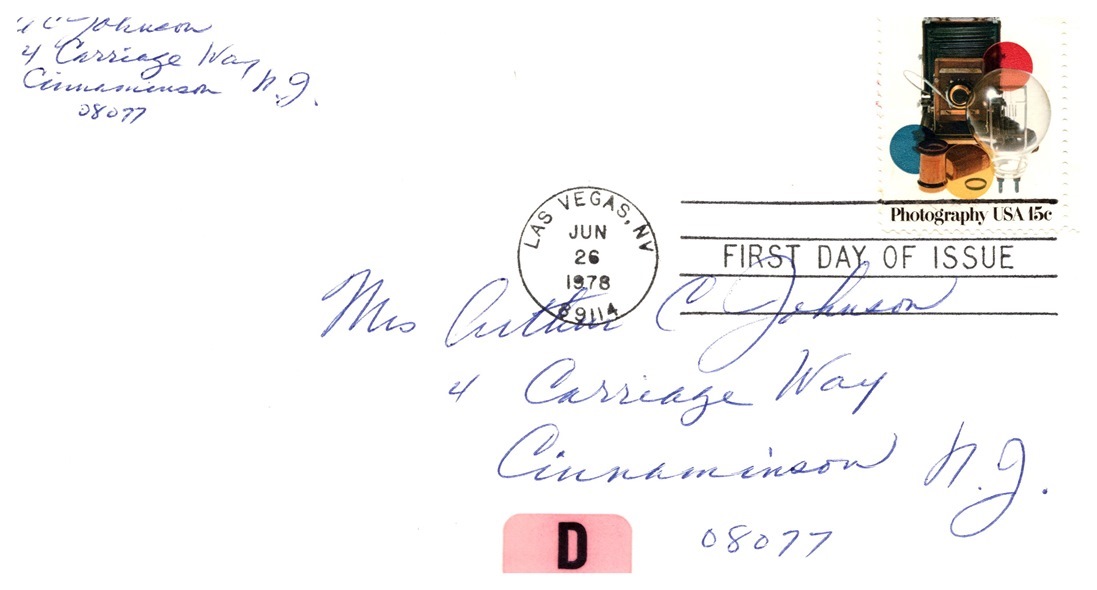 A C Johnson
4 Carriage Way
Cinnaminson N.J.
08077
Photography USA 15c
LAS VEGAS, NV
JUN
26
1978
89114
FIRST DAY OF ISSUE
Mrs Arthur C Johnson
4 Carriage Way
Cinnaminson N.J.
08077
D